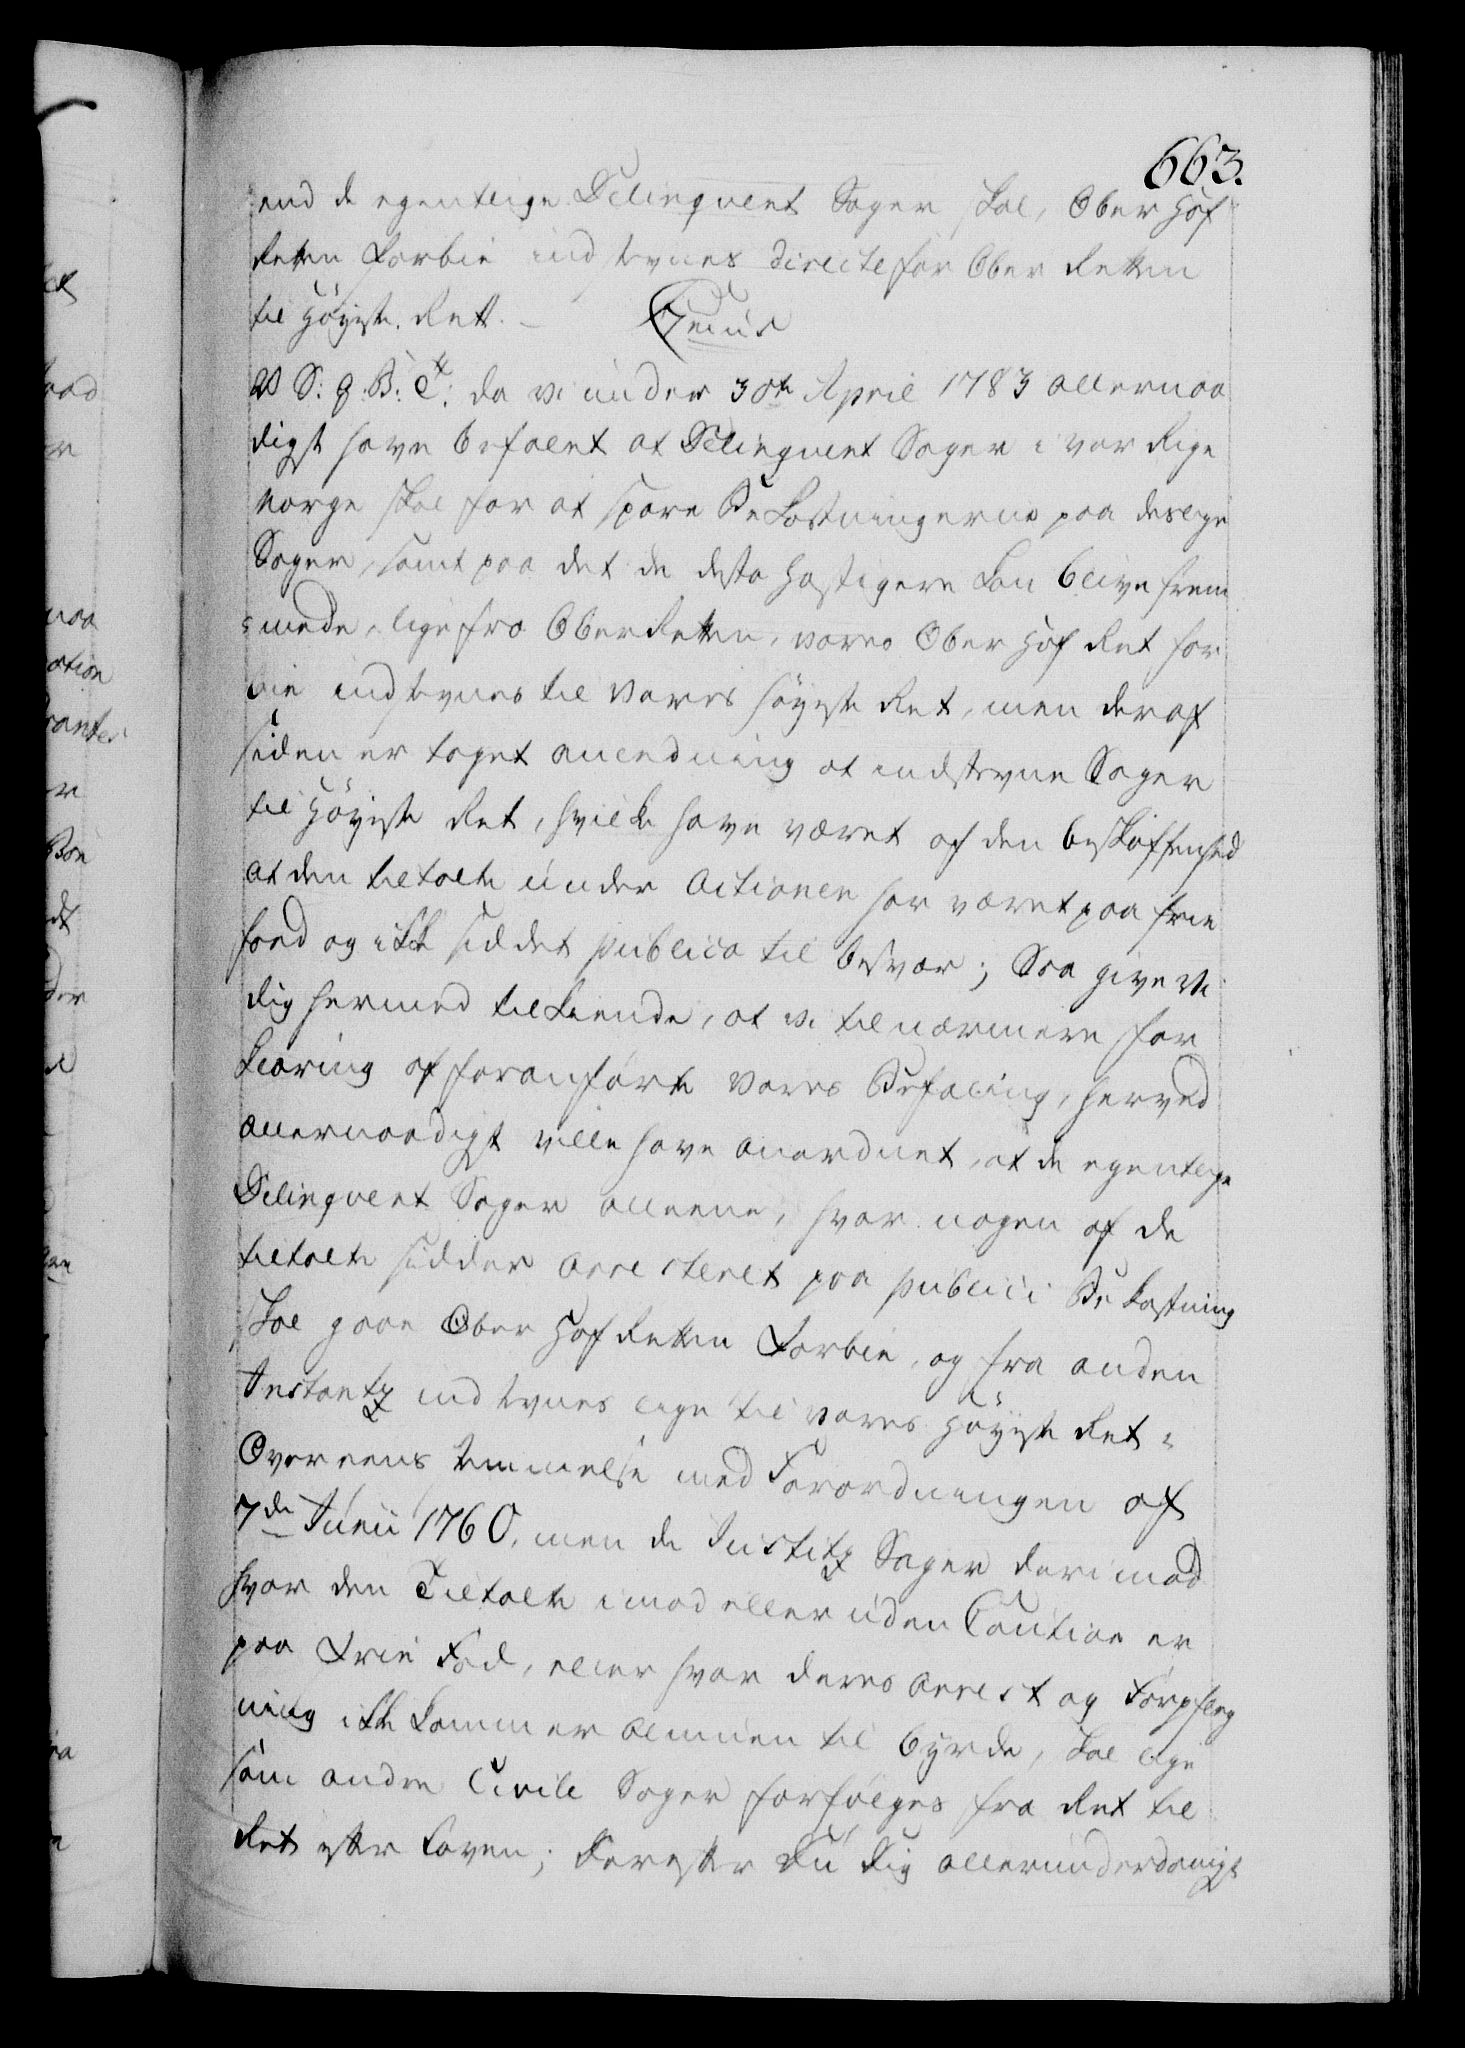 663.
end de egentlige Delinqvent Sager skal, Ober Hof
Retten forbie indstevnes directe for Ober Retten
til Høyeste Rett. –
V. S: G. B: T: da vi under 30te April 1783 allernaa
digst have befalet at Delinqvent Sager i vor Rige
Norge skal for at spare Bekostningerne paa deslige
Sager, samt paa det de desto hastigere kan blive frem
mede, lige fra OberRetten, vores Ober Hof Ret for
bie indstevnes til vores Høyeste Ret, men deraf
siden er taget anledning at indstevne Sager
til Høyeste Ret, hvilke have været af den beskaffenhed
at den tiltalte under Actionen har været paa frie
Foed og ikke siddet publico til besvær; Saa give Vi
dig hermed tilkiende, at vi til nærmere for
klaring af foranførte vores Befaling, herved
allernaadigst ville have anordnet, at de egentlige
Delinqvent Sager alleene, hvor nogen af de
tiltalte sidder arresteret paa publici Bekostning
skal gaae Ober Hof Retten forbie, og fra anden
Instantz indstevnes lige til vores Høyeste Ret i
Overeensstemmelse med Forordningen af
7de Junii 1760, men de Justitz Sager derimod
hvor den Tiltalte imod eller uden Caution er
paa frie Fod, eller hvor deres Arrest og Forpfleg
ning ikke kommer almuen til byrde, skal lige
som andre Civile Sager forfølges fra Ret til
Ret efter Loven; Derefter Du dig allerunderdanigst